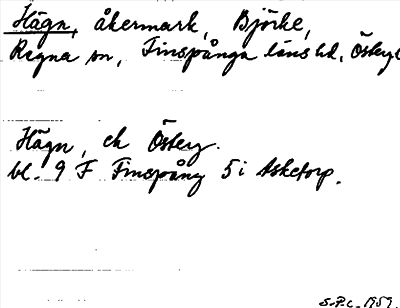 Hägn, åkermark, Björke,
Regna sn, Finspånga läns hd, Österg
Hägn, ek Österg.
bl. 9 F Finspång 5 i Asketorp.
S.P.C. 1959.